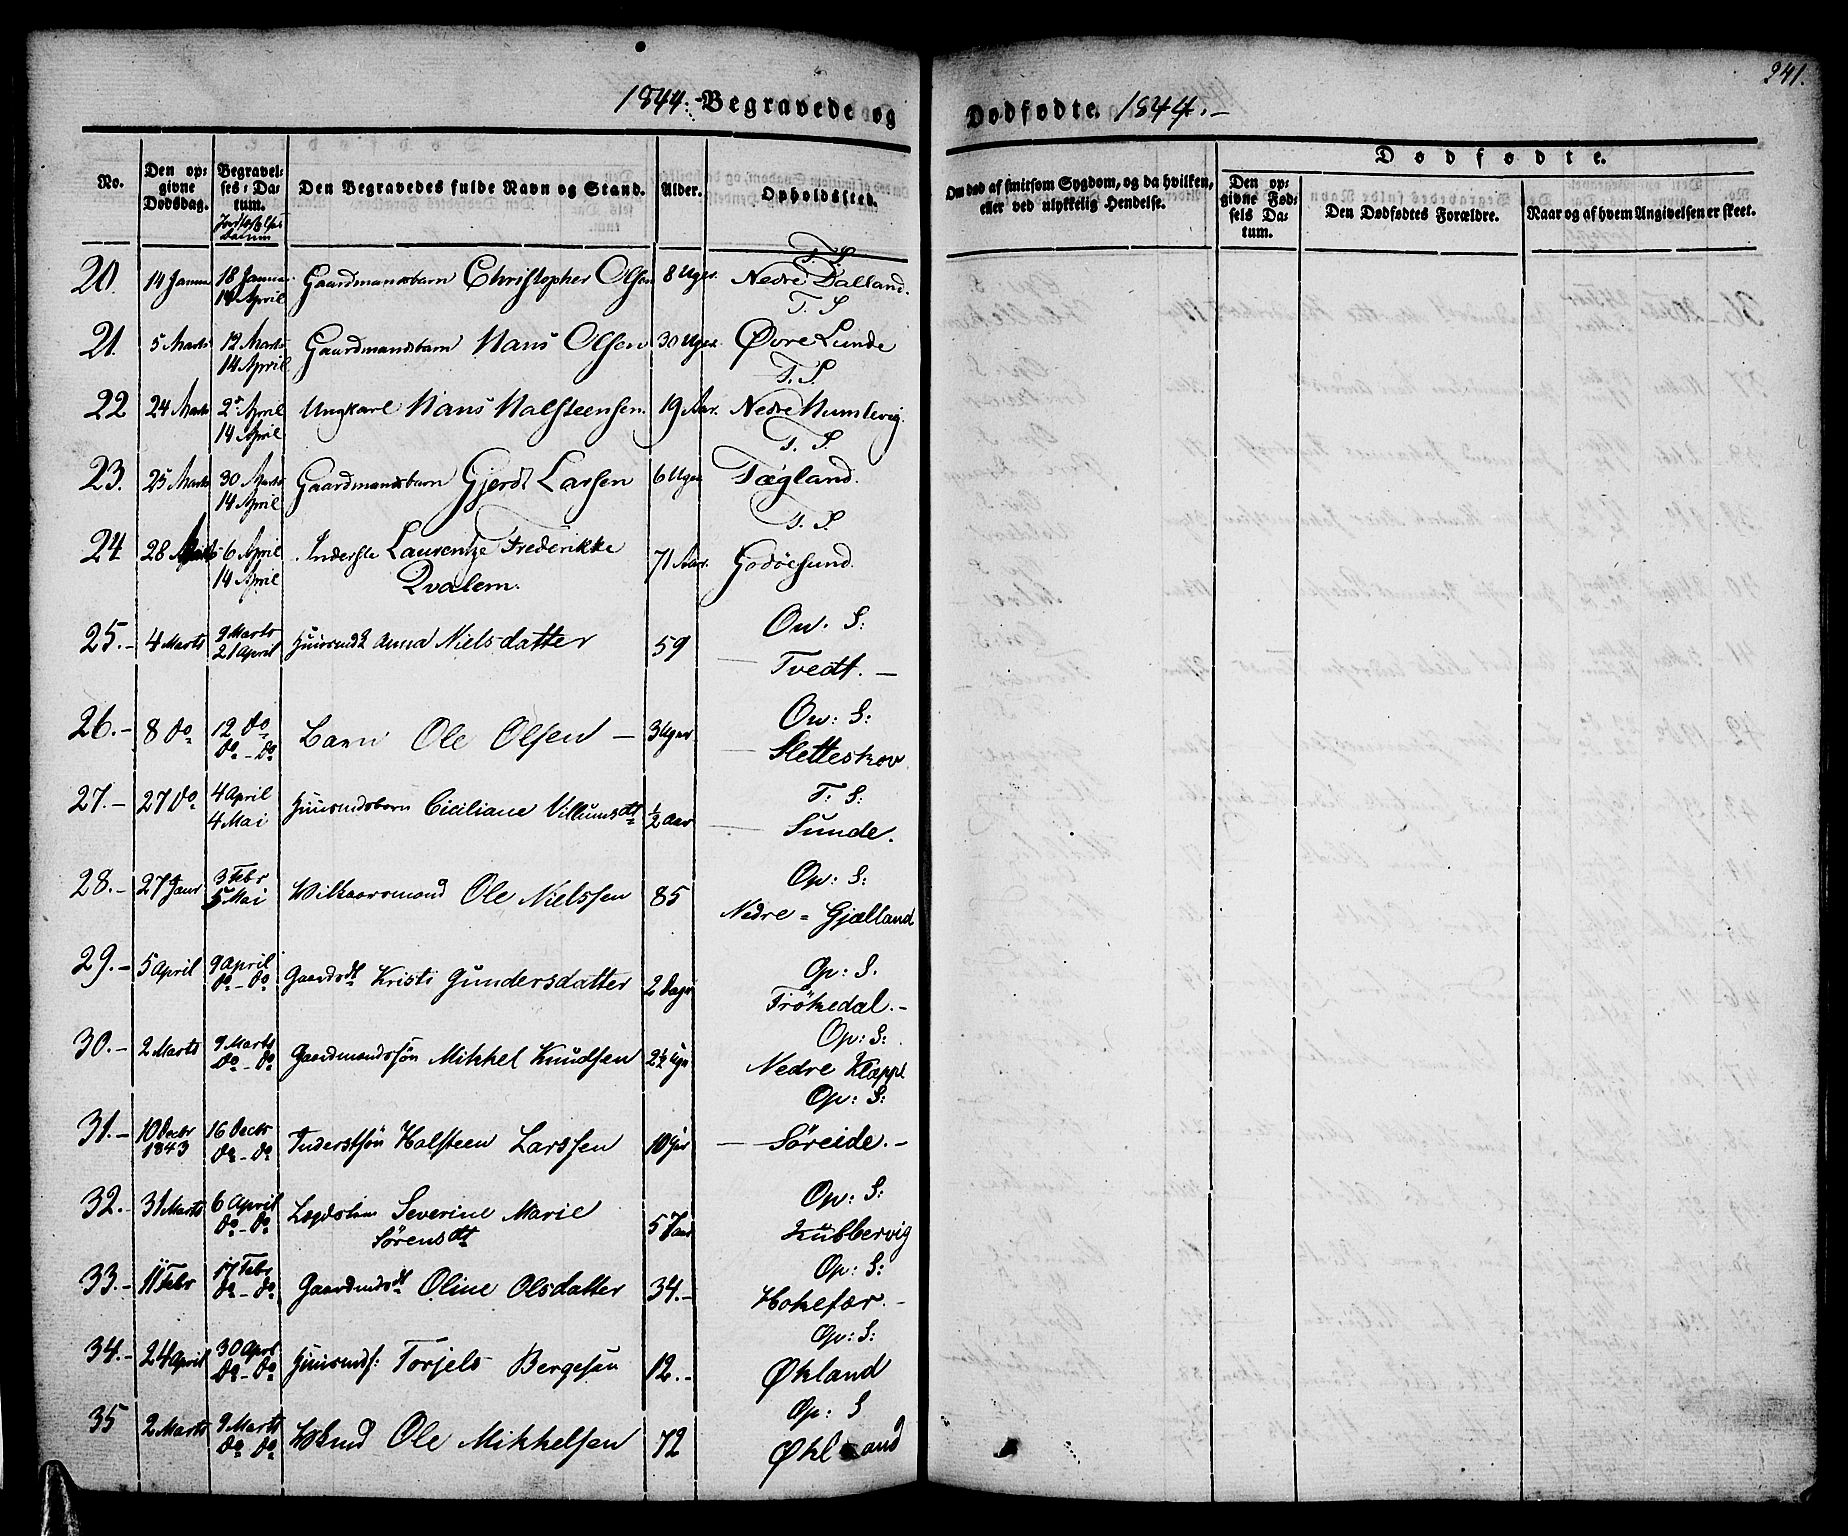 1844. Begravede og Dødfødte. 1844.
241.
No.
Den opgivne Dødsdag.
Begravelses-Datum.
Jordfæstelses Datum
Den Begravedes fulde Navn og Stand.
Alder.
Opholdssted.
Om død af smitsom Sygdom, og da hvilken, eller ved ulykkelig Hendelse.
Dødfødte.
Den opgivne Fødsels Datum.
Den Dødfødtes Forældre.
Naar og af hvem Angivelsen er skeet.
20. 14 Janua 18 Janua Gaardmandsbarn Christopher Olsen 8 Uger T. S.
14 April Nedre Dalland.
21. 5 Marts 12 Marts Gaardmandsbarn Hans Olsen 30 Uger T. S
14 April Øvre Lunde
22 24 Marts 2 April Ungkarl Hans Halsteensen 19 Aar. T. S.
14 April Nedre Humlevig.
23. 25 Marts 30 Marts Gaardmandsbarn Gjerdt Larsen 6 Uger T. S.
14 April Tægland.
24 28 Marts 6 April Inderste Laurentze Frederikke T. S
14 April Qvalem. 71 Aar. Godøesund.
25.- 4 Marts 9 Marts Huusmdk Anna Nielsdatter 59 Ow. S:
21 April Tvedt.-
26.- 8 do 12 do Barn Ole Olsen - 3 Uger Ow: S:
do - do Sletteskov
27.- 27 do 4 April Huusmdsbarn Ciciliane Villumsdt ½ Aar T: S:
4 Mai Sunde.
28.- 27 Janr 3 Febr Wilkaarsmand Ole Nielssen 85 Op: S:
5 Mai Nedre = Gjælland
29.- 5 April 9 April Gaardsdt Kristi Gundersdatter 2 Dage Op: S.
do - do Frökedal.-
30.- 2 Marts 9 Marts Gaardmandssön Mikkel Knudsen 2½ Uge Op: S:
do - do Nedre Klæppe
31.- 10 Decbr 16 Decbr Inderstsön Halsteen Larssen 10 Op: S:
1843 do - do Söreide.-
32.- 31 Marts 6 April Lægdslem Severine Marie Op: S:
do - do Sörensdt 57 Aar Kubbervig
33.- 11 Febr 17 Febr Gaardmdsdt Oline Olsdatter 34.- Op: S:
do - do Hokefær.-
34.- 24 April 30 Aprl Huusmds: Torjels Bergesen 12.- Op: S:
do - do Økland
35 2 Marts 9 Marts Ole Mikkelsen 72 Op: S
do do Økland